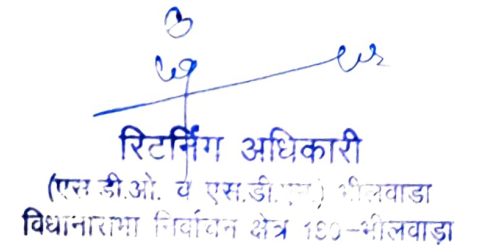 रिटर्निंग अधिकारी
(एस.डी.ओ. व एस.डी.एम.) भीलवाडा
विधानसभा निर्वाचन क्षेत्र 180-भीलवाड़ा